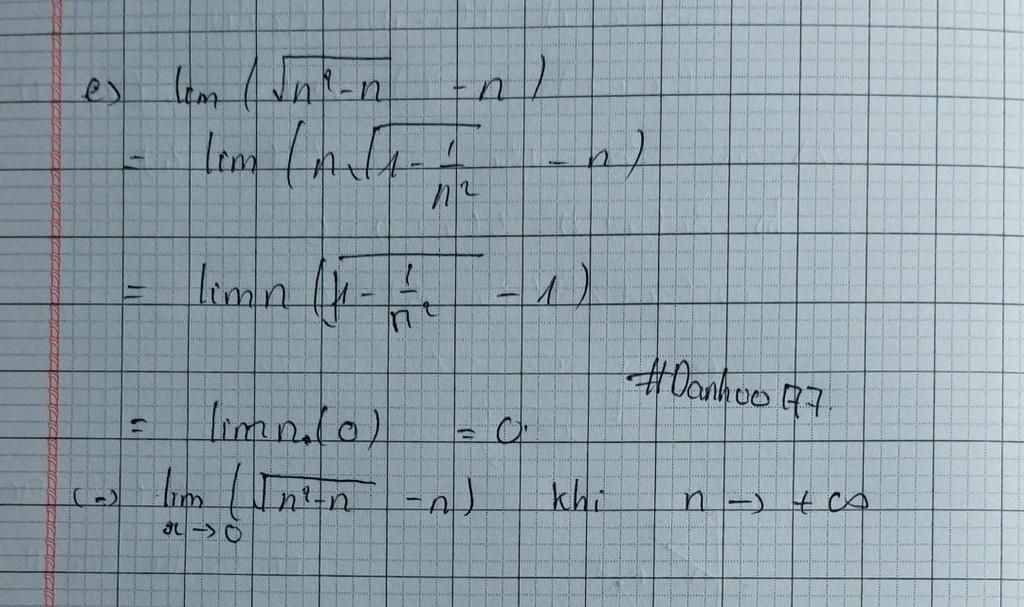 e) lim (√(n²-n) - n)
= lim (n.√(1 - 1/n²) - n)
= lim n (√(1 - 1/n²) - 1)
#Danhoo77.
= lim n.(0) = 0.
(=) lim x→0 (√(n²-n) - n) khi n → +∞